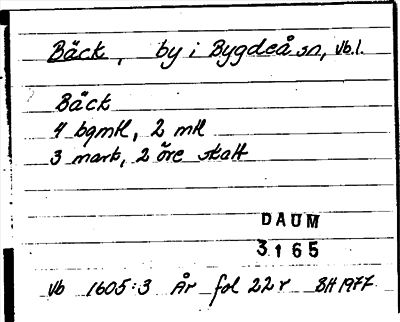 Bäck, by i Bygdeå sn, Vb.l.
Bäck
4 bgmtl, 2 mtl
3 mark, 2 öre skatt
DAUM
3165
Vb 1605:3 År fol 22 r BH 1977